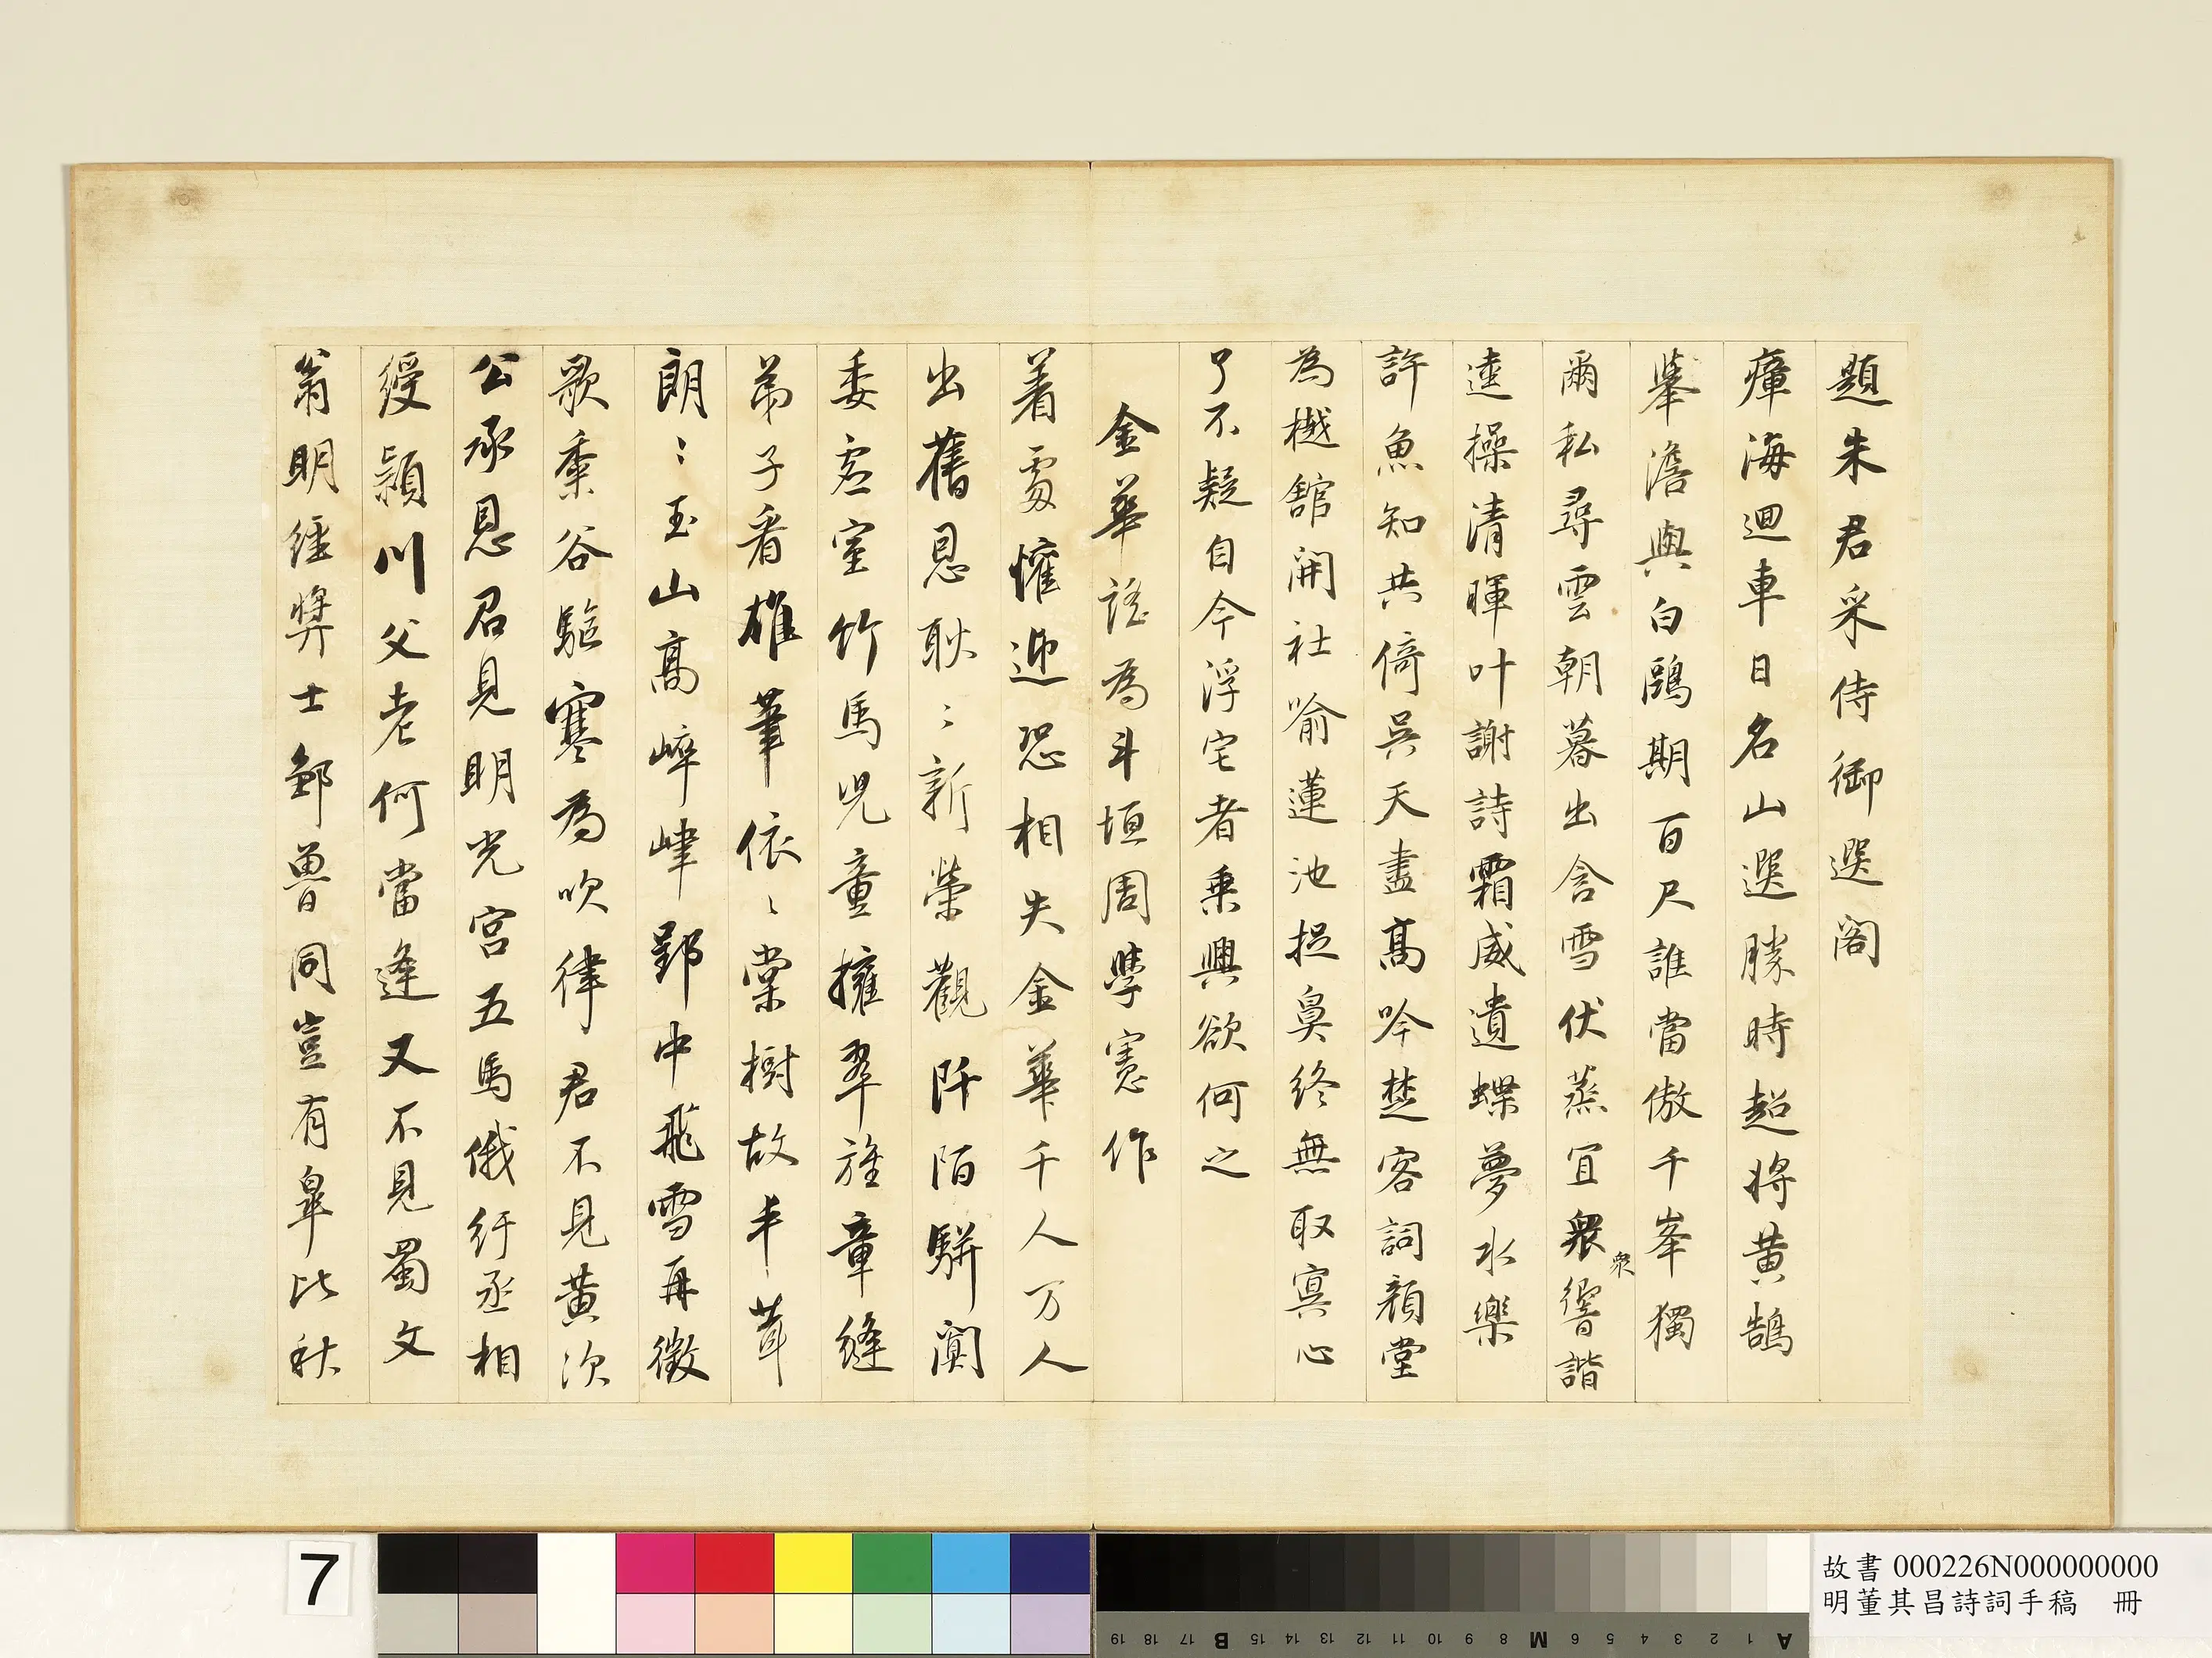 題朱君采侍御選閣
瘴海迴車日名山選勝時超將黃鵠
舉澹與白鷗期百尺誰當傲千峯獨
爾私尋雲朝暮出含雪伏蒸宜衆響諧
衆
逺操清暉叶謝詩霜威遺蝶夢水樂
許魚知共倚吳天盡高吟楚客詞顏堂
為樾舘開社喻蓮池捉鼻終無取寞心
了不疑自今浮宅者乗興欲何之
金華謠為斗垣周學憲作
着處懽迎恐相失金華千人万人
出舊恩耿〻新榮觀阡陌駢闐
委巷室竹馬兒童擁翠旌章縫
弟子看雄筆依〻棠樹故丰茸
朗〻玉山高崒嵂郢中飛雪再徵
歌黍谷驅寒為吹律君不見黃次
公承恩召見明光宮五馬俄紆丞相
綬潁川父老何當逢又不見蜀文
翁明經獎士鄒魯同豈有皐比秋
7
故書 000226N000000000
明董其昌詩詞手稿 冊
A 1 2 3 4 5 6 M 8 9 10 11 12 13 14 15 B 17 18 19